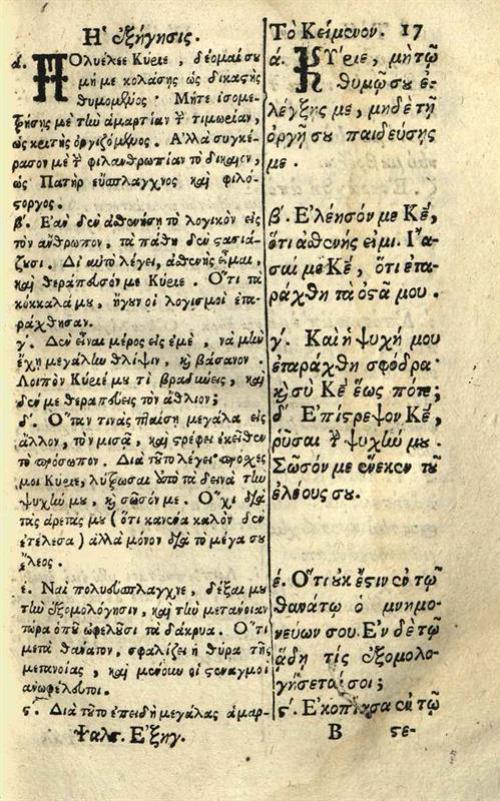 Ἡ ἐξήγησις.
ά. ΠΟλυέλεε Κύριε, δέομαί σου
μή με κολάσῃς ὡς δικαστὴς
θυμομένος· Μήτε ἰσομε-
τρήσῃς μὲ τὴν ἁμαρτίαν τὴν τιμωρίαν,
ὡς κριτὴς ὀργιζόμενος. Ἀλλὰ συγκέ-
ρασον μὲ τὴν φιλανθρωπίαν τὸ δίκαιον,
ὡς Πατὴρ εὔσπλαγχνος καὶ φιλό-
στοργος.
β΄. Ἐὰν δὲν ἀσθενήσῃ τὸ λογικὸν εἰς
τὸν ἄνθρωπον, τὰ πάθη δὲν στασιά-
ζουσι. Δι αὐτὸ λέγει, ἀσθενὴς εἶμαι,
καὶ θεράπευσόν με Κύριε. Ὅτι τὰ
κόκκαλά μου, ἤγουν οἱ λογισμοὶ ἐτα-
ράχθησαν.
γ΄. Δὲν εἶναι μέρος εἰς ἐμὲ, νὰ μὴν
ἔχῃ μεγάλην θλίψιν, καὶ βάσανον.
Λοιπὸν Κύριέ μου τί βραδύνεις, καὶ
δέν με θεραπεύεις τὸν ἄθλιον;
δ΄. Ὅταν τινὰς πταίσῃ μεγάλα εἰς
ἄλλον, τὸν μισᾷ, καὶ στρέφει ἐκεῖθεν
τὸ πρόσωπον. Διὰ τοῦτο λέγει· πρόσχες
μοι Κύριε, λύτρωσαι ἀπὸ τὰ δεινὰ τὴν
ψυχήν μου, καὶ σῶσόν με. Ὄχι διὰ
τὰς ἀρετάς μου (ὅτι κανένα καλὸν δὲν
ἐτέλεσα) ἀλλὰ μόνον διὰ τὸ μέγα σου
ἔλεος.
έ. Ναὶ πολυεύσπλαγχνε, δέξαι μου
τὴν ἐξομολόγησιν, καὶ τὴν μετάνοιαν
τώρα ὁποῦ ὠφελοῦσι τὰ δάκρυα. Ὅτι
μετὰ θάνατον, σφαλίζει ἡ θύρα τῆς
μετανοίας, καὶ μένουν οἱ στεναγμοὶ
ἀνωφέλευτοι.
ς΄. Διὰ τοῦτο ἐπειδὴ μεγάλας ἁμαρ-
Ψαλτ. Ἐξηγ.
Τὸ Κείμενον. 17
ά. ΚΥριε, μὴ τῷ
θυμῷ σου ἐ-
λέγξῃς με, μηδὲ τῇ
ὀργῇ σου παιδεύσῃς
με.
β΄. Ἐλέησόν με Κέ,
ὅτι ἀσθενής εἰμι. Ἴα-
σαί με Κέ, ὅτι ἐτα-
ράχθη τὰ ὀστᾶ μου.
γ΄. Καὶ ἡ ψυχή μου
ἐταράχθη σφόδρα·
καὶ σὺ Κέ ἕως πότε;
δ΄ Ἐπίστρεψον Κέ,
ῥῦσαι τὴν ψυχήν μου.
Σῶσόν με ἕνεκεν τοῦ
ἐλέους σου.
έ. Ὅτι οὐκ ἔστιν ἐν τῷ
θανάτῳ ὁ μνημο-
νεύων σου. Ἐν δὲ τῷ
ᾅδῃ τίς ἐξομολο-
γήσεταί σοι;
ς΄. Ἐκοπίασα ἐν τῷ
B στε-